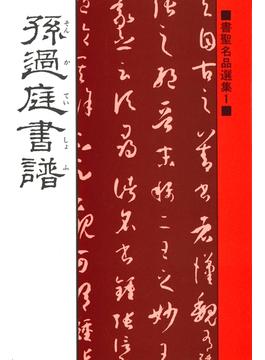 ■書聖名品選集1■
夫自古之善書者漢魏有
之絶晉末稱二王之妙王
云頃尋諸名書鍾張信
孫過庭書譜
そんかていしょふ